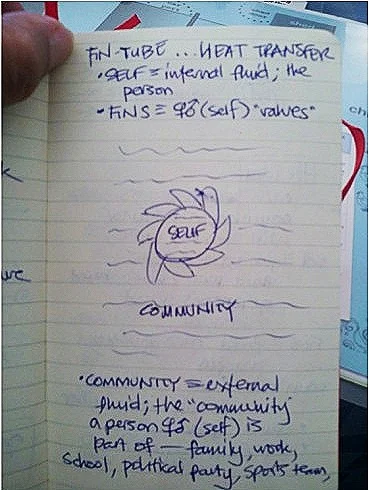 FIN-TUBE ... HEAT TRANSFER
• SELF = internal fluid; the
person
• FINS = ♀♂ (self) "values"
SELF
COMMUNITY
• COMMUNITY = external
fluid; the "community"
a person ♀♂ (self) is
part of — family, work,
school, political party, sports team,